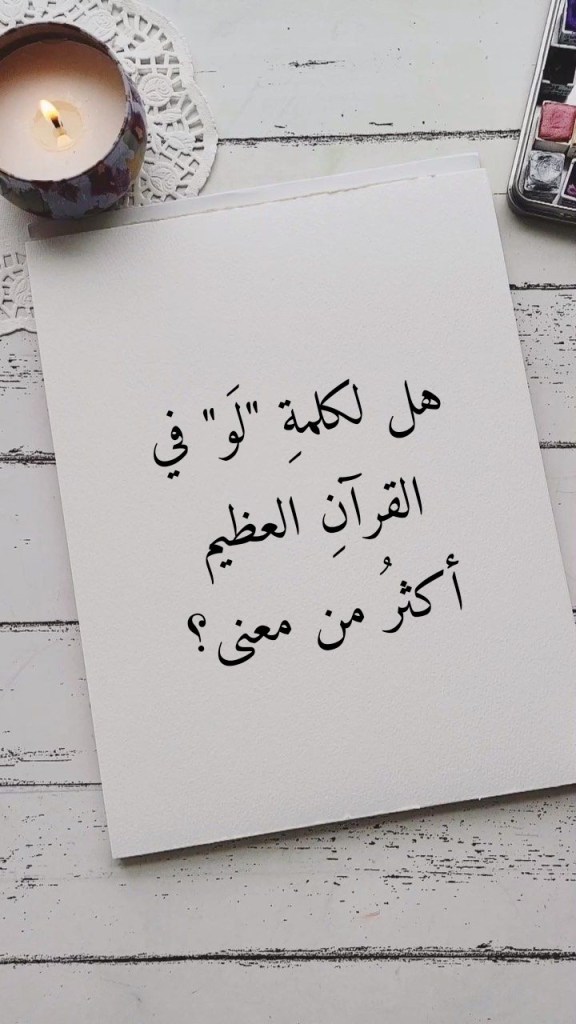 هل لكلمةِ "لَو" في
القرآنِ العظيم
أكثرُ من معنى؟